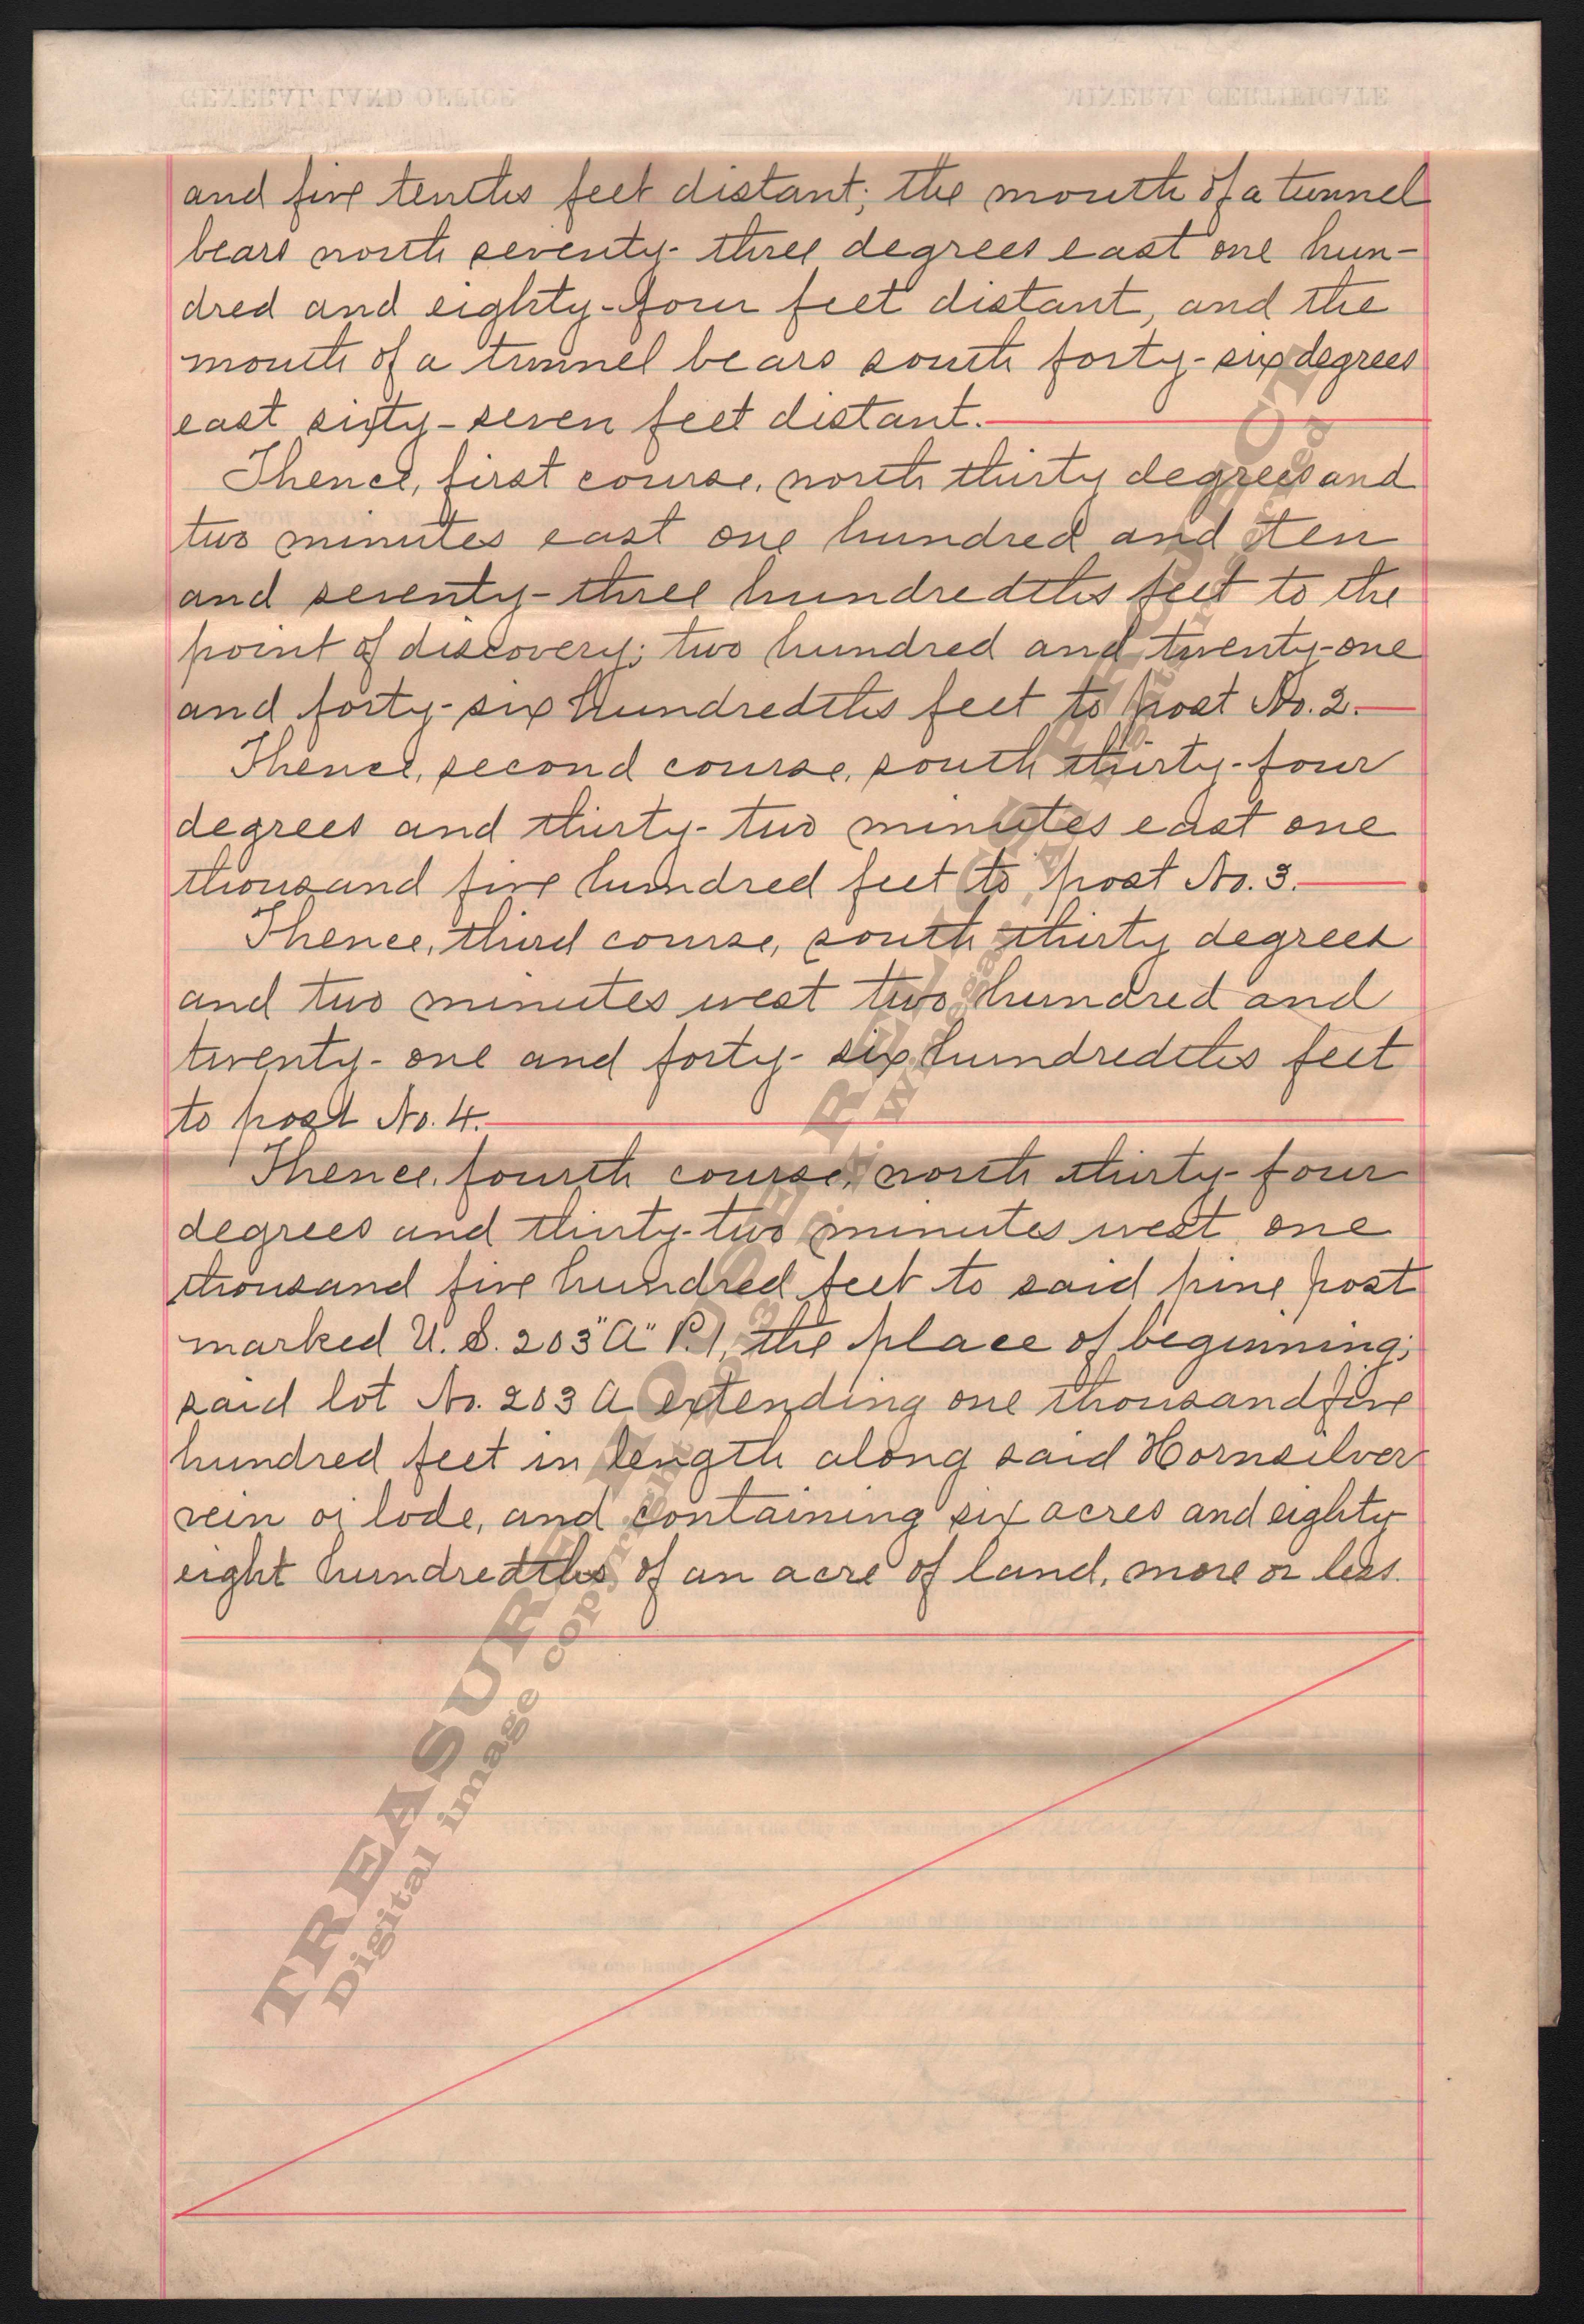 and five tenths feet distant; the mouth of a tunnel
bears north seventy-three degrees east one hun-
dred and eighty-four feet distant, and the
mouth of a tunnel bears south forty-six degrees
east sixty-seven feet distant.
Thence, first course, north thirty degrees and
two minutes east one hundred and ten
and seventy-three hundredths feet to the
point of discovery; two hundred and twenty-one
and forty-six hundredths feet to post No. 2.
Thence, second course, south thirty-four
degrees and thirty-two minutes east one
thousand five hundred feet to post No. 3.
Thence, third course, south thirty degrees
and two minutes west two hundred and
twenty-one and forty-six hundredths feet
to post No. 4.
Thence, fourth course, north thirty-four
degrees and thirty-two minutes west one
thousand five hundred feet to said pine post
marked U.S. 203 "A" P.1, the place of beginning;
said lot No. 203 A extending one thousand five
hundred feet in length along said Hornsilver
vein or lode, and containing six acres and eighty
eight hundredths of an acre of land, more or less.
GENERAL LAND OFFICE
MINERAL CERTIFICATE
TREASURE
Digital image copyright